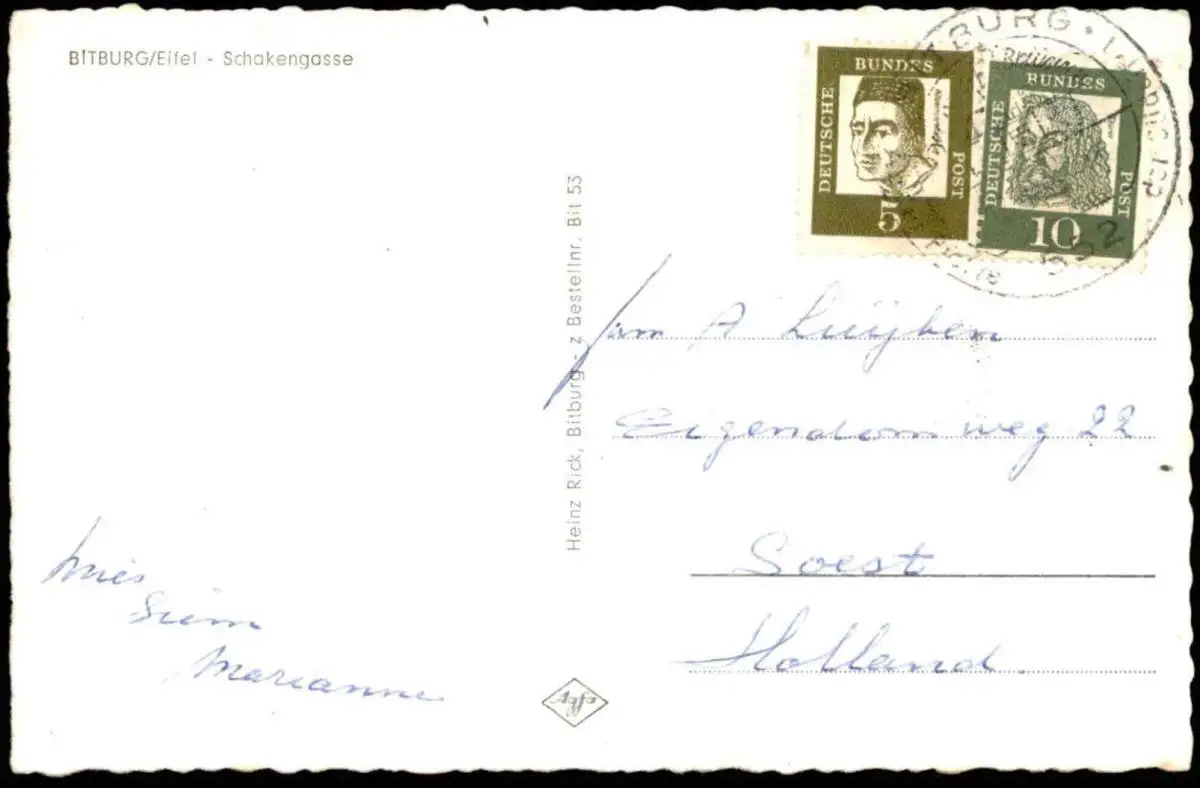 BITBURG/Eifel - Schakengasse
DEUTSCHE
BUNDES
POST
5
DEUTSCHE
BUNDES
POST
10
BURG
Heinz Rick, Bitburg - z Bestellnr. Bit 53
Fam A Luijben
Eigendom weg 22
Soest
Holland.
Siem
Marianne
Agfa